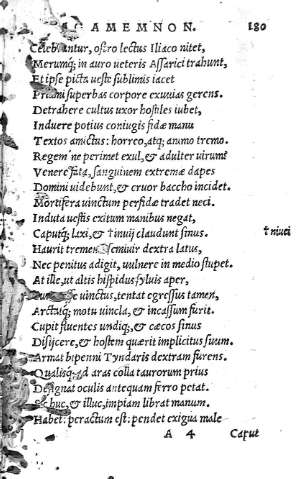 AMEMNON. 180
Celebrantur, ostro lectus Iliaco nitet,
Merumq; in auro veteris Assarici trahunt,
Et ipse picta ueste sublimis iacet
Priami superbas corpore exuuias gerens.
Detrahere cultus uxor hostiles iubet,
Induere potius coniugis fidæ manu
Textos amictus: horreo, atq; animo tremo.
Regem ne perimet exul, & adulter uirum?
Venere fata, sanguinem extremæ dapes
Domini uidebunt, & cruor baccho incidet.
Mortifera uinctum perfidæ tradet neci.
Induta uestis exitum manibus negat,
Caputq; laxi, & †inuij claudunt sinus.
† niuei
Haurit tremens semiuir dextra latus,
Nec penitus adigit, uulnere in medio stupet.
At ille, ut altis hispidus syluis aper,
uinctus, tentat egressus tamen,
Arctatq; motu uincla, & incassum furit.
Cupit fluentes undiq;, & cæcos sinus
Disijcere, & hostem quærit implicitus suum.
Armat bipenni Tyndaris dextram furens.
Qualisq; ad aras colla taurorum prius
Designat oculis antequam ferro petat.
Sic huc, & illuc, impiam librat manum.
Habet: peractum est: pendet exigua male
A 4 Caput